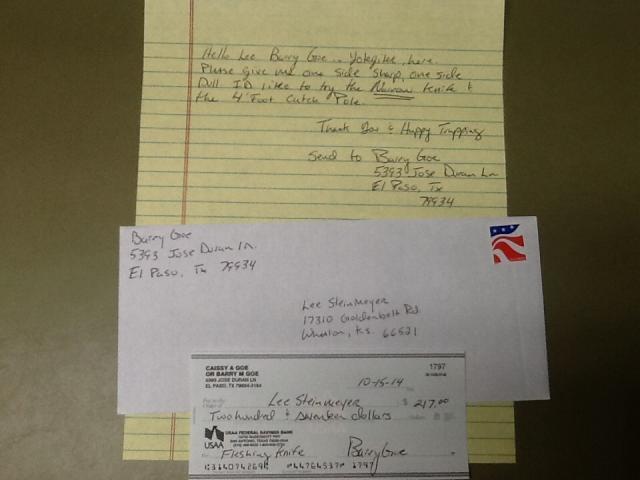 Hello Lee Barry Goe... Yotegitee, here.
Please give me one side sharp, one side
Dull I'D like to try the Narrow Knife &
the 4' Foot Catch Pole.
Thank You & Happy Trapping
Send to Barry Goe
5393 Jose Duran Ln
El Paso, Tx
79934
Barry Goe
5393 Jose Duran Ln.
El Paso, Tx 79934
Lee Steinmeyer
17310 Goldenbelt Rd.
Wheaton, Ks. 66521
CAISSY A GOE
OR BARRY M GOE
5393 JOSE DURAN LN
EL PASO, TX
1797
10-15-14
Lee Steinmeyer $ 217.00
Two hundred & seventeen dollars
USAA FEDERAL SAVINGS BANK
USAA
Fleshing Knife Barry Goe
1797